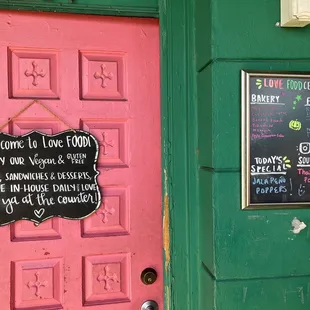 come to Love FOOD!
Y OUR Vegan & GLUTEN FREE
, SANDWICHES & DESSERTS,
E IN-HOUSE DAILY! LOVE
ya at the counter!
LOVE FOOD CE
BAKERY
TODAY'S
SPECIAL
SOU
JALAPEÑO
POPPERS